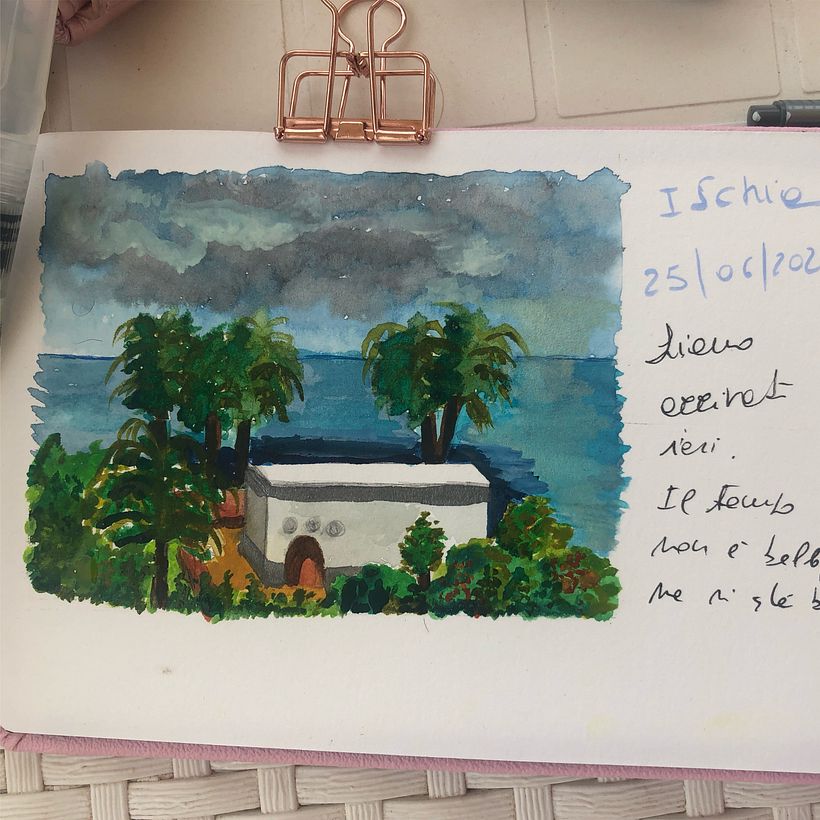 Ischia
25/06/202
siamo
arrivati
ieri.
Il tempo
non è bello